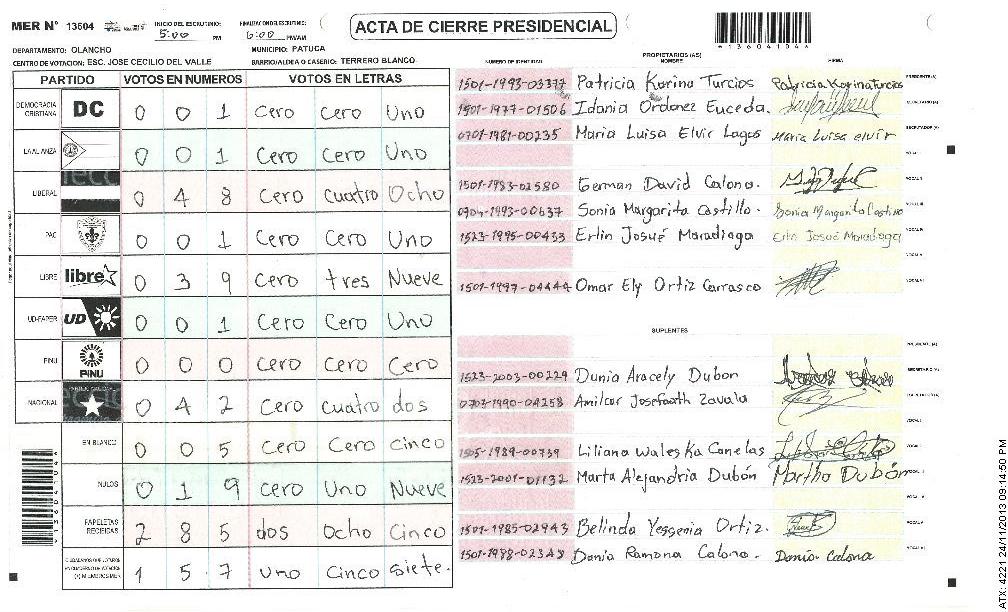 MER N° 13604
INICIO DEL ESCRUTINIO: 5:00 PM
FINALIZACION DEL ESCRUTINIO: 6:00 PM/AM
ACTA DE CIERRE PRESIDENCIAL
*13604104*
DEPARTAMENTO: OLANCHO
MUNICIPIO: PATUCA
CENTRO DE VOTACION: ESC. JOSE CECILIO DEL VALLE
BARRIO/ALDEA O CASERIO: TERRERO BLANCO
PARTIDO VOTOS EN NUMEROS VOTOS EN LETRAS
DEMOCRACIA CRISTIANA DC 0 0 1 Cero Cero Uno
LA ALIANZA 0 0 1 Cero Cero Uno
LIBERAL 0 4 8 Cero Cuatro Ocho
PAC 0 0 1 Cero Cero Uno
LIBRE libre 0 3 9 Cero tres Nueve
UD-FAPER UD 0 0 1 Cero Cero Uno
PINU PINU 0 0 0 Cero Cero Cero
NACIONAL 0 4 2 Cero Cuatro dos
EN BLANCO 0 0 5 Cero Cero Cinco
NULOS 0 1 9 Cero Uno Nueve
PAPELETAS RECIBIDAS 2 8 5 dos Ocho Cinco
1 5 7 Uno Cinco Siete.
PROPIETARIOS (AS)
NUMERO DE IDENTIDAD NOMBRE FIRMA
1501-1993-03377 Patricia Korina Turcios Patricia Korina Turcios PRESIDENTE(A)
1501-1977-01506 Idania Ordonez Euceda. SECRETARIO (A)
0701-1981-00235 Maria Luisa Elvir Lagos Maria Luisa elvir ESCRUTADOR (A)
VOCAL I
1501-1983-02580 German David Calona. VOCAL II
0704-1993-00637 Sonia Margarita Castillo. Sonia Margarita Castillo VOCAL III
1523-1995-00433 Erlin Josué Maradiaga Erlin Josué Maradiaga VOCAL IV
VOCAL V
1501-1997-04444 Omar Ely Ortiz Carrasco VOCAL VI
SUPLENTES
PRESIDENTE (A)
1523-2003-00229 Dunia Aracely Dubon SECRETARIO (A)
0703-1990-04258 Amilcar Josefaath Zavala
VOCAL I
1505-1989-00739 Liliana Waleska Canelas
1523-2001-01132 Marta Alejandria Dubón Martha Dubón
1501-1985-02943 Belinda Yessenia Ortiz.
1501-1988-02348 Dania Ramona Calona. Dania Calona
ATX: 4221 24/11/2013 09:14:50 PM